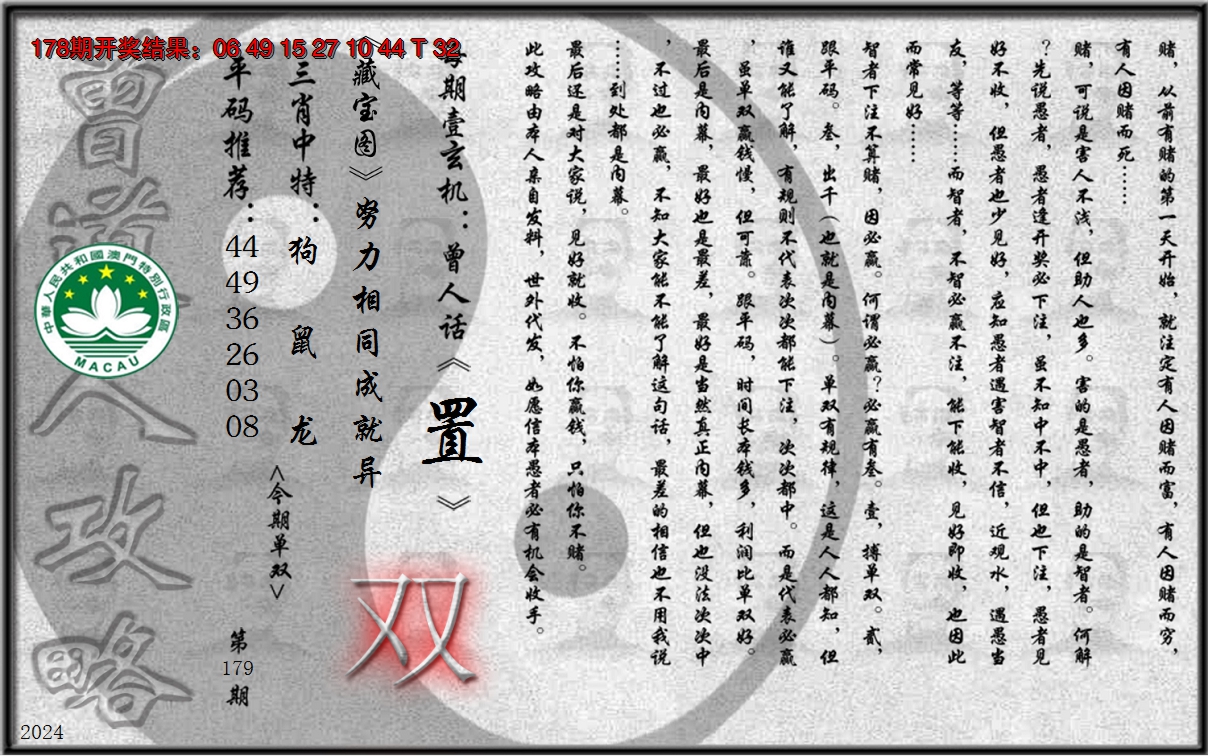 178期开奖结果：06 49 15 27 10 44 T 32
赌，从前有赌的第一天开始，就注定有人因赌而富，有人因赌而穷，
有人因赌而死……
赌，可说是害人不浅，但助人也多。害的是愚者，助的是智者。何解
？先说愚者，愚者逢开奖必下注，虽不知中不中，但也下注，愚者见
好不收，但愚者也少见好，应知愚者遇害智者不信，近观水，遇愚当
友，等等……而智者，不智必赢不注，能下能收，见好即收，也因此
而常见好……
智者下注不算赌，因必赢。何谓必赢？必赢有叁。壹，搏单双。贰，
跟平码。叁，出千（也就是内幕）。单双有规律，这是人人都知，但
谁又能了解，有规则不代表次次都能下注，次次都中。而是代表必赢
，虽单双赢钱慢，但可靠。跟平码，时间长本钱多，利润比单双好。
最后是内幕，最好也是最差，最好是当然真正内幕，但也没法次次中
，不过也必赢，不知大家能不能了解这句话，最差的相信也不用我说
……到处都是内幕。
最后还是对大家说，见好就收。不怕你赢钱，只怕你不赌。
此攻略由本人亲自发料，世外代发，如愿信本愚者必有机会收手。
每期壹玄机：曾人话《置》
《藏宝图》努力相同成就异
双
三肖中特：狗 鼠 龙
<今期单双>
平码推荐：
44
49
36
26
03
08
第
179
期
曾道人攻略
中華人民共和國澳門特別行政區
MACAU
2024